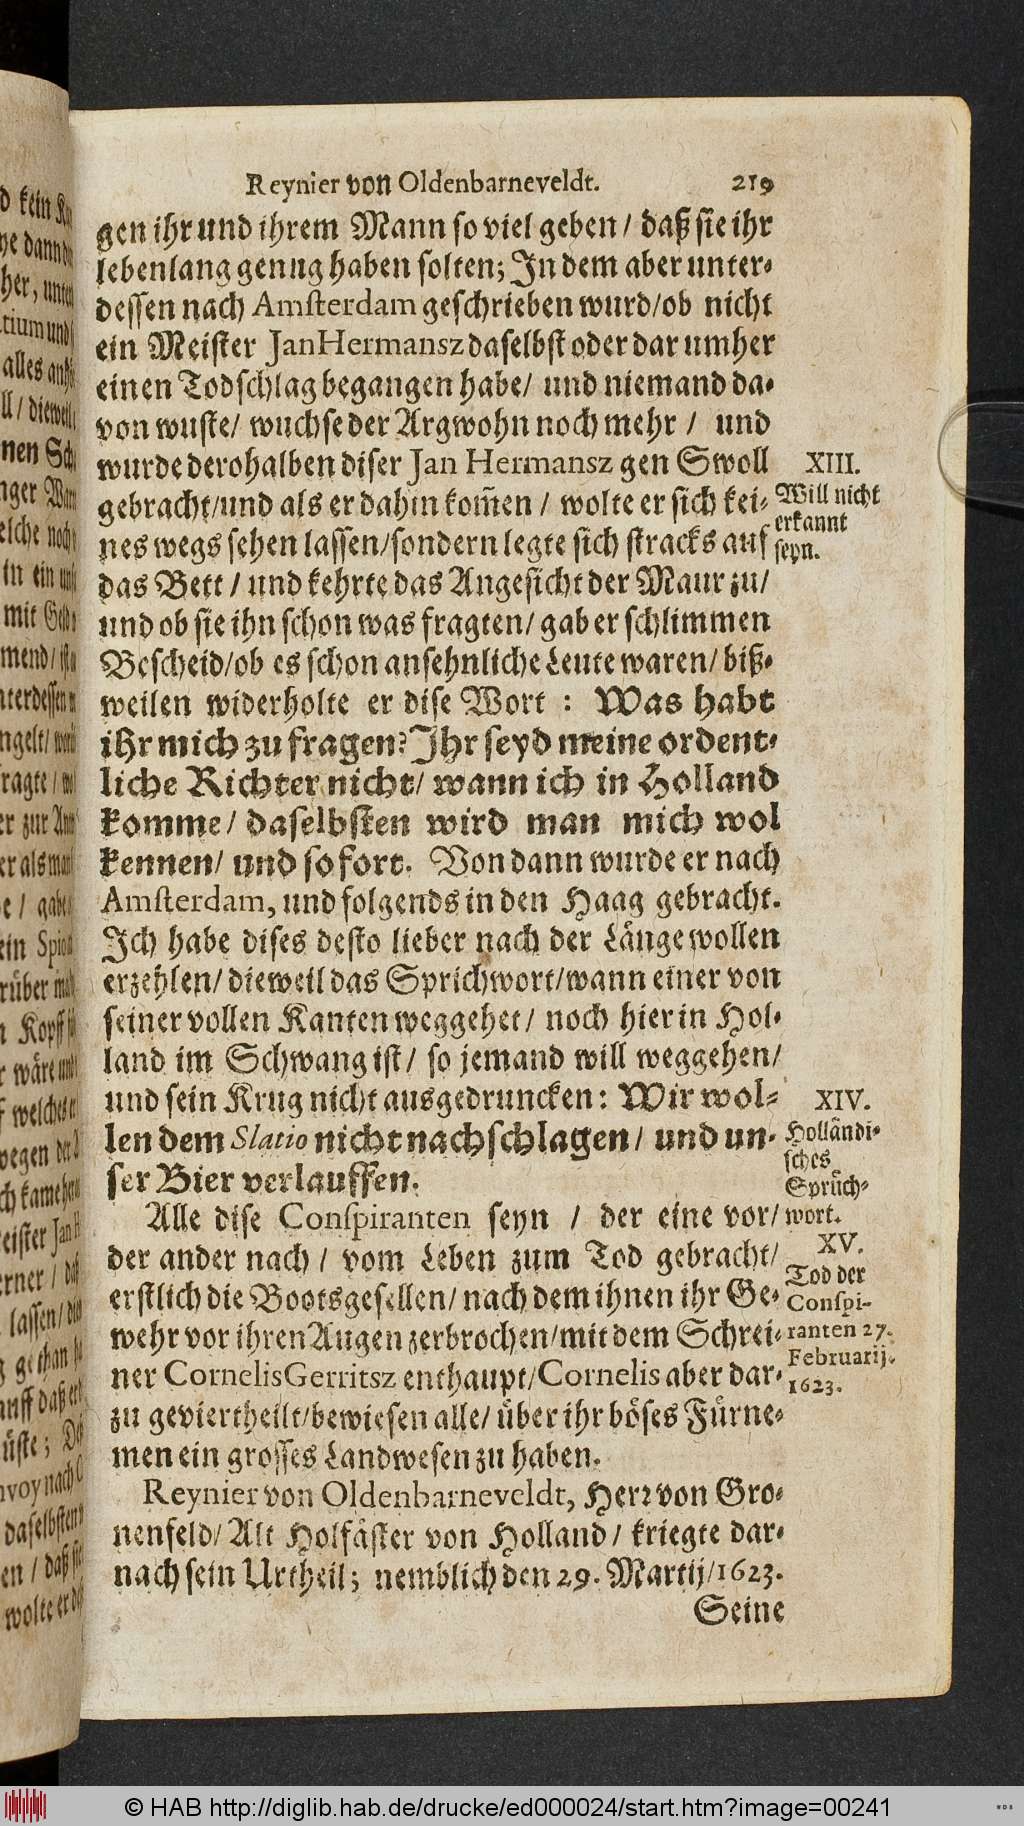 Reynier von Oldenbarneveldt. 219
gen ihr und ihrem Mann so viel geben / daß sie ihr
lebenlang genug haben solten; In dem aber unter-
dessen nach Amsterdam geschrieben wurd/ob nicht
ein Meister Jan Hermansz daselbst oder dar umher
einen Todschlag begangen habe/ und niemand da-
von wuste/ wuchse der Argwohn noch mehr / und
wurde derohalben diser Jan Hermansz gen Swoll
gebracht/und als er dahin kom̃en / wolte er sich kei-
nes wegs sehen lassen/sondern legte sich stracks auf
das Bett / und kehrte das Angesicht der Maur zu/
und ob sie ihn schon was fragten/ gab er schlimmen
Bescheid/ob es schon ansehnliche Leute waren/ biß-
weilen widerholte er dise Wort : Was habt
ihr mich zu fragen? Ihr seyd meine ordent-
liche Richter nicht/ wann ich in Holland
komme/ daselbsten wird man mich wol
kennen/ und so fort. Von dann wurde er nach
Amsterdam, und folgends in den Haag gebracht.
Ich habe dises desto lieber nach der Länge wollen
erzehlen/ dieweil das Sprichwort/wann einer von
seiner vollen Kanten weggehet/ noch hier in Hol-
land im Schwang ist/ so jemand will weggehen/
und sein Krug nicht ausgedruncken: Wir wol-
len dem Slatio nicht nachschlagen/ und un-
ser Bier verlauffen.
Alle dise Conspiranten seyn / der eine vor/
der ander nach / vom Leben zum Tod gebracht/
erstlich die Bootsgesellen/ nach dem ihnen ihr Ge-
wehr vor ihren Augen zerbrochen/mit dem Schrei-
ner Cornelis Gerritsz enthaupt/Cornelis aber dar-
zu geviertheilt/bewiesen alle/ über ihr böses Fürne-
men ein grosses Landwesen zu haben.
Reynier von Oldenbarneveldt, Herr von Gro-
nenfeld/ Alt Holfäster von Holland / kriegte dar-
nach sein Urtheil; nemblich den 29. Martij/1623.
Seine
XIII.
Will nicht
erkannt
seyn.
XIV.
Holländi-
sches
Sprüch-
wort.
XV.
Tod der
Conspi-
ranten 27.
Februarij.
1623.
© HAB http://diglib.hab.de/drucke/ed000024/start.htm?image=00241